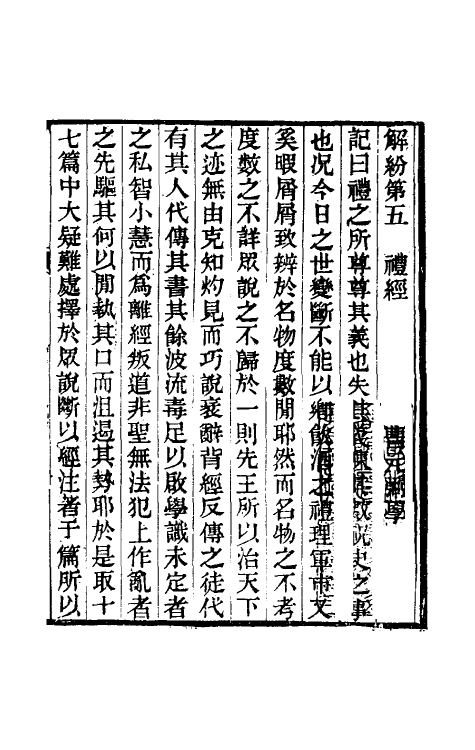 解紛第五 禮經 曹元弼學
記曰禮之所尊尊其義也失其義陳其數祝史之事
也况今日之世變斷不能以鄉飮酒之禮理軍市又
奚暇屑屑致辨於名物度數閒耶然而名物之不考
度數之不詳眾說之不歸於一則先王所以治天下
之迹無由克知灼見而巧說衺辭背經反傳之徒代
有其人代傳其書其餘波流毒足以啟學識未定者
之私智小慧而爲離經叛道非聖無法犯上作亂者
之先驅其何以閒執其口而沮遏其勢耶於是取十
七篇中大疑難處擇於眾說斷以經注著于篇所以